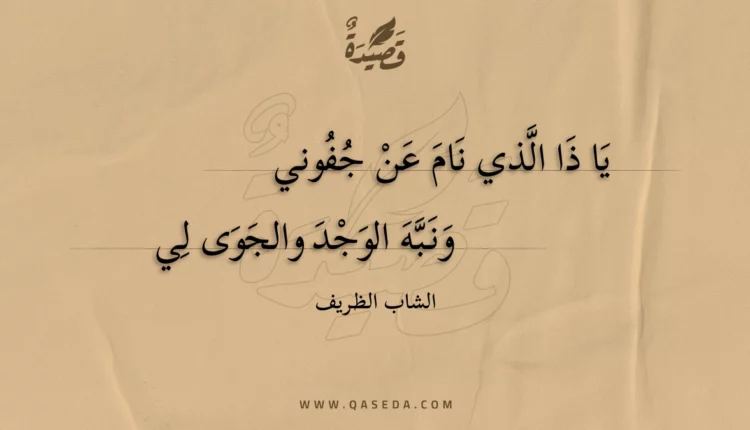 قَصِيْدَةٌ
يَا ذَا الَّذي نَامَ عَنْ جُفُوني
وَنَبَّهَ الوَجْدَ والجَوَى لِي
الشاب الظريف
WWW.QASEDA.COM